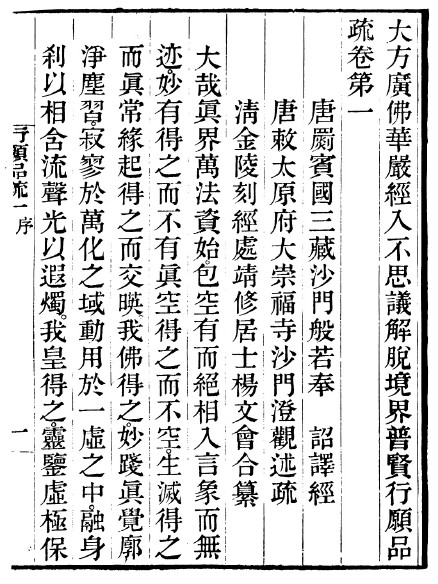 大方廣佛華嚴經入不思議解脫境界普賢行願品
疏卷第一
唐罽賓國三藏沙門般若奉 詔譯經
唐敕太原府大崇福寺沙門澄觀述疏
淸金陵刻經處靖修居士楊文會合纂
大哉眞界萬法資始。包空有而絕相入言象而無
迹。妙有得之而不有眞空得之而不空。生滅得之
而眞常緣起得之而交暎。我佛得之。妙踐眞覺廓
淨塵習寂寥於萬化之域動用於一虛之中。融身
刹以相含流聲光以遐燭。我皇得之。靈鑒虛極保
行願品疏一 序 一